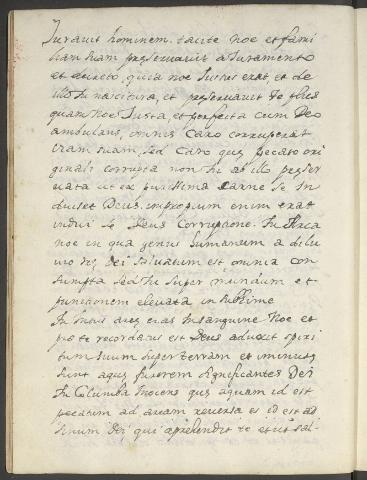 Juravit hominem. tacite Noe et fami
liam suam preservavit a Juramento
et decreto, quia noe Justus erat, et de
illo tu nascitura, et preservavit te plus
quam Noe Justa, et perfecta cum Deo
ambulans, omnis caro corruperat
viam suam, sed caro que pecato ori
ginali corrupta non tu ab illo preser
vata ut ex purissima carne se in
duiset Deus. impropium enim erat
indui se Deus Corruptione. Tu Arca
noe in qua genus humanum a dilu
vio Dei salvatum est omnia con
sumpta sed tu super mundum et
punctionem elevata in sublime
Tu intus aves eras in sanguine Noe et
pro te recordatus est Deus aduxit spiri
tum suum super terram et iminutę
sunt aque furorem significantes Dei
Tu Columba inocens que aquam id est
pecatum ad arcam reversa es id est ad
sinum Dei qui aprehendit te et ut sal-